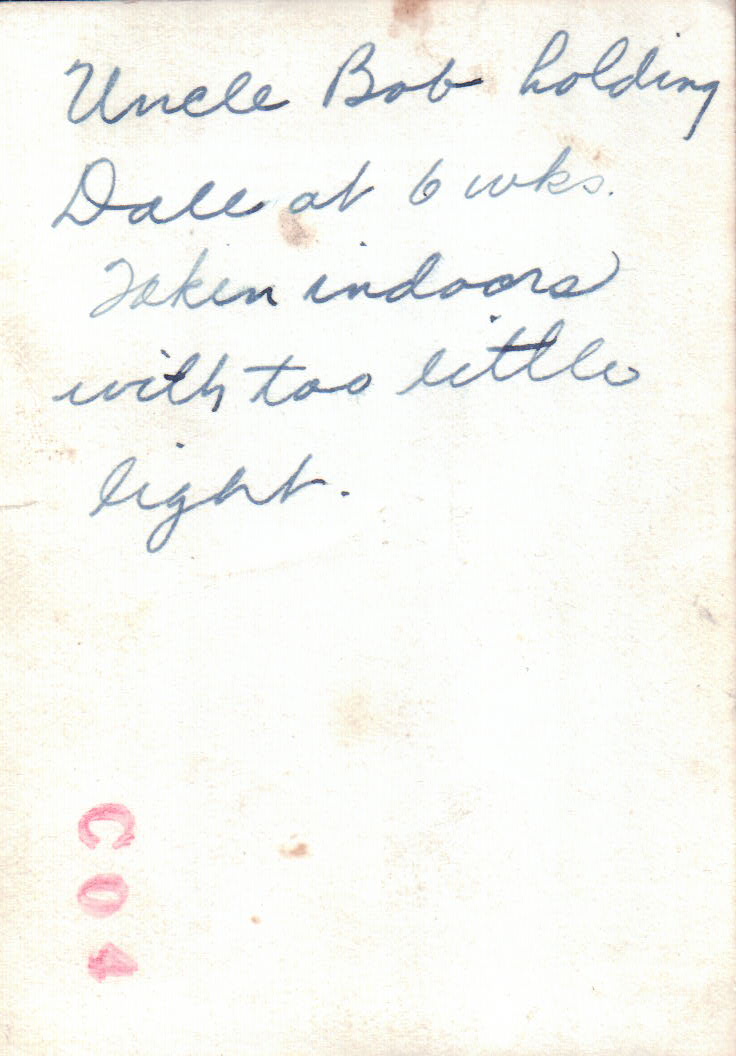 Uncle Bob holding
Dale at 6 wks.
Taken indoors
with too little
light.
C04